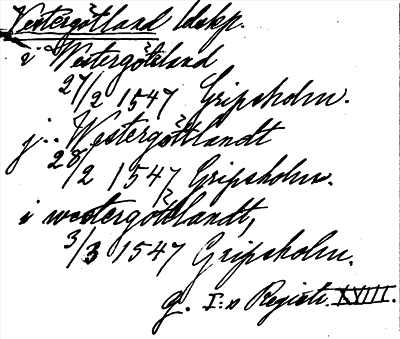 Vestergötland ldskp.
i Westergötzland
27/2 1547 Gripsholm.
j.. Westergöttlandt
28/2 1547 Gripsholm.
i westergöttlandt,
3/3 1547 Gripsholm.
G. I:s Registr. XVIII.